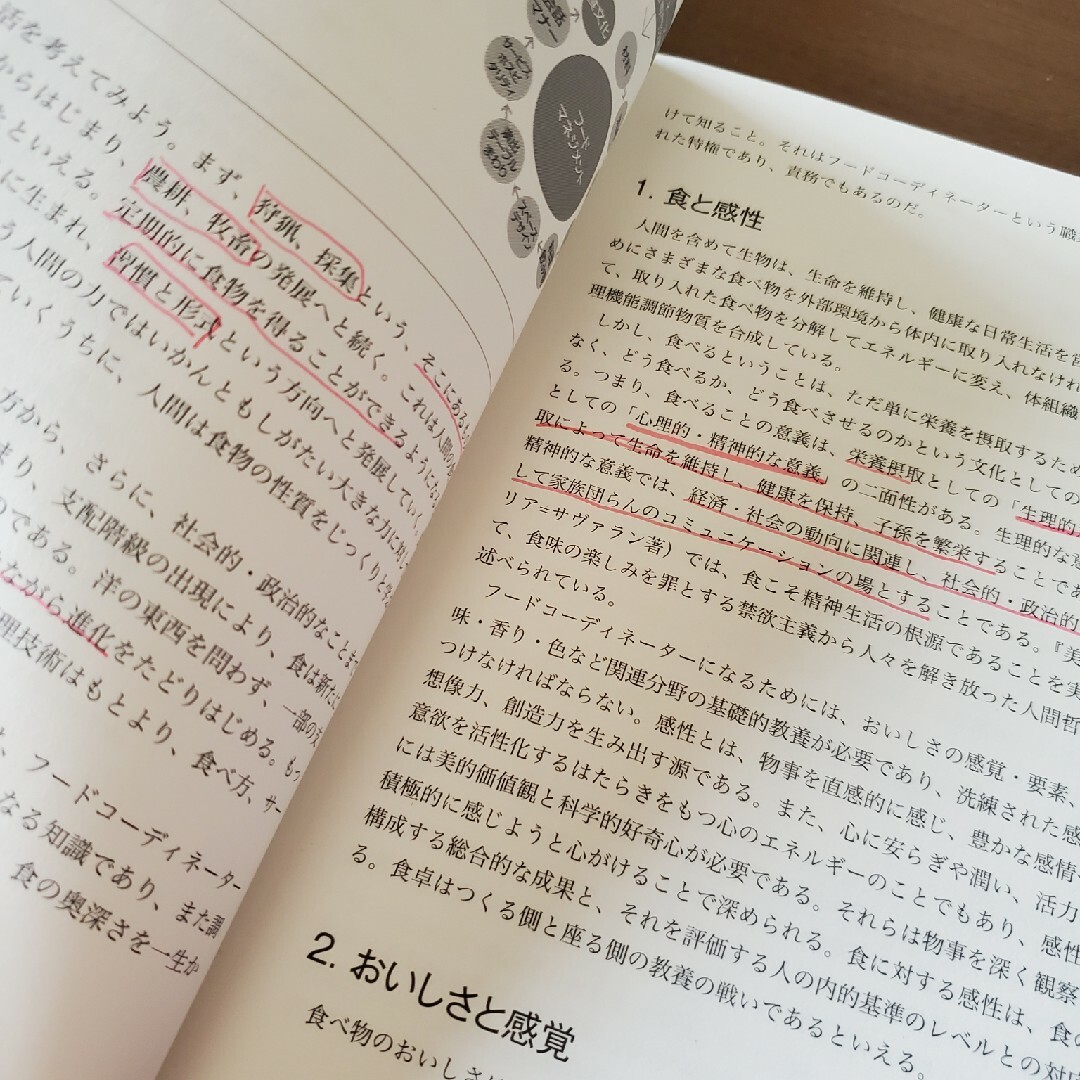 活を考えてみよう。まず、狩猟、採集という、そこにある
からはじまり、農耕、牧畜の発展へと続く。これは人間の
たといえる。定期的に食物を得ることができるように
に生まれ、習慣と形式という方向へと発展してい
う人間の力ではいかんともしがたい大きな力に
ていくうちに、人間は食物の性質をじっくりと
方から、さらに、社会的・政治的なこと
まり、支配階級の出現により、食は新た
のである。洋の東西を問わず、一部の
ながら進化をたどりはじめる。も
理技術はもとより、食べ方、サー
、フードコーディネーター
なる知識であり、また
食の奥深さを一生か
マナー
サービス
ホスピ
タリティ
テーブル
フード
マネジメント
けて知ること。それはフードコーディネーターという職
れた特権であり、責務でもあるのだ。
1. 食と感性
人間を含めて生物は、生命を維持し、健康な日常生活を営
めにさまざまな食べ物を外部環境から体内に取り入れなけれ
て、取り入れた食べ物を分解してエネルギーに変え、体組織
理機能調節物質を合成している。
しかし、食べるということは、ただ単に栄養を摂取するため
なく、どう食べるか、どう食べさせるのかという文化としての
る。つまり、食べることの意義は、栄養摂取としての「生理的
としての「心理的・精神的な意義」の二面性がある。生理的な意
取によって生命を維持し、健康を保持、子孫を繁栄することであ
精神的な意義では、経済・社会の動向に関連し、社会的・政治的
して家族団らんのコミュニケーションの場とすることである。『美
リア=サヴァラン著）では、食こそ精神生活の根源であることを実
て、食味の楽しみを罪とする禁欲主義から人々を解き放った人間哲
述べられている。
フードコーディネーターになるためには、おいしさの感覚・要素、
味・香り・色など関連分野の基礎的教養が必要であり、洗練された感
つけなければならない。感性とは、物事を直感的に感じ、豊かな感情、
想像力、創造力を生み出す源である。また、心に安らぎや潤い、活力
意欲を活性化するはたらきをもつ心のエネルギーのことでもあり、感性
には美的価値観と科学的好奇心が必要である。それらは物事を深く観察
積極的に感じようと心がけることで深められる。食に対する感性は、食の
構成する総合的な成果と、それを評価する人の内的基準のレベルとの対応
る。食卓はつくる側と座る側の教養の戦いであるといえる。
2. おいしさと感覚
食べ物のおいしさは